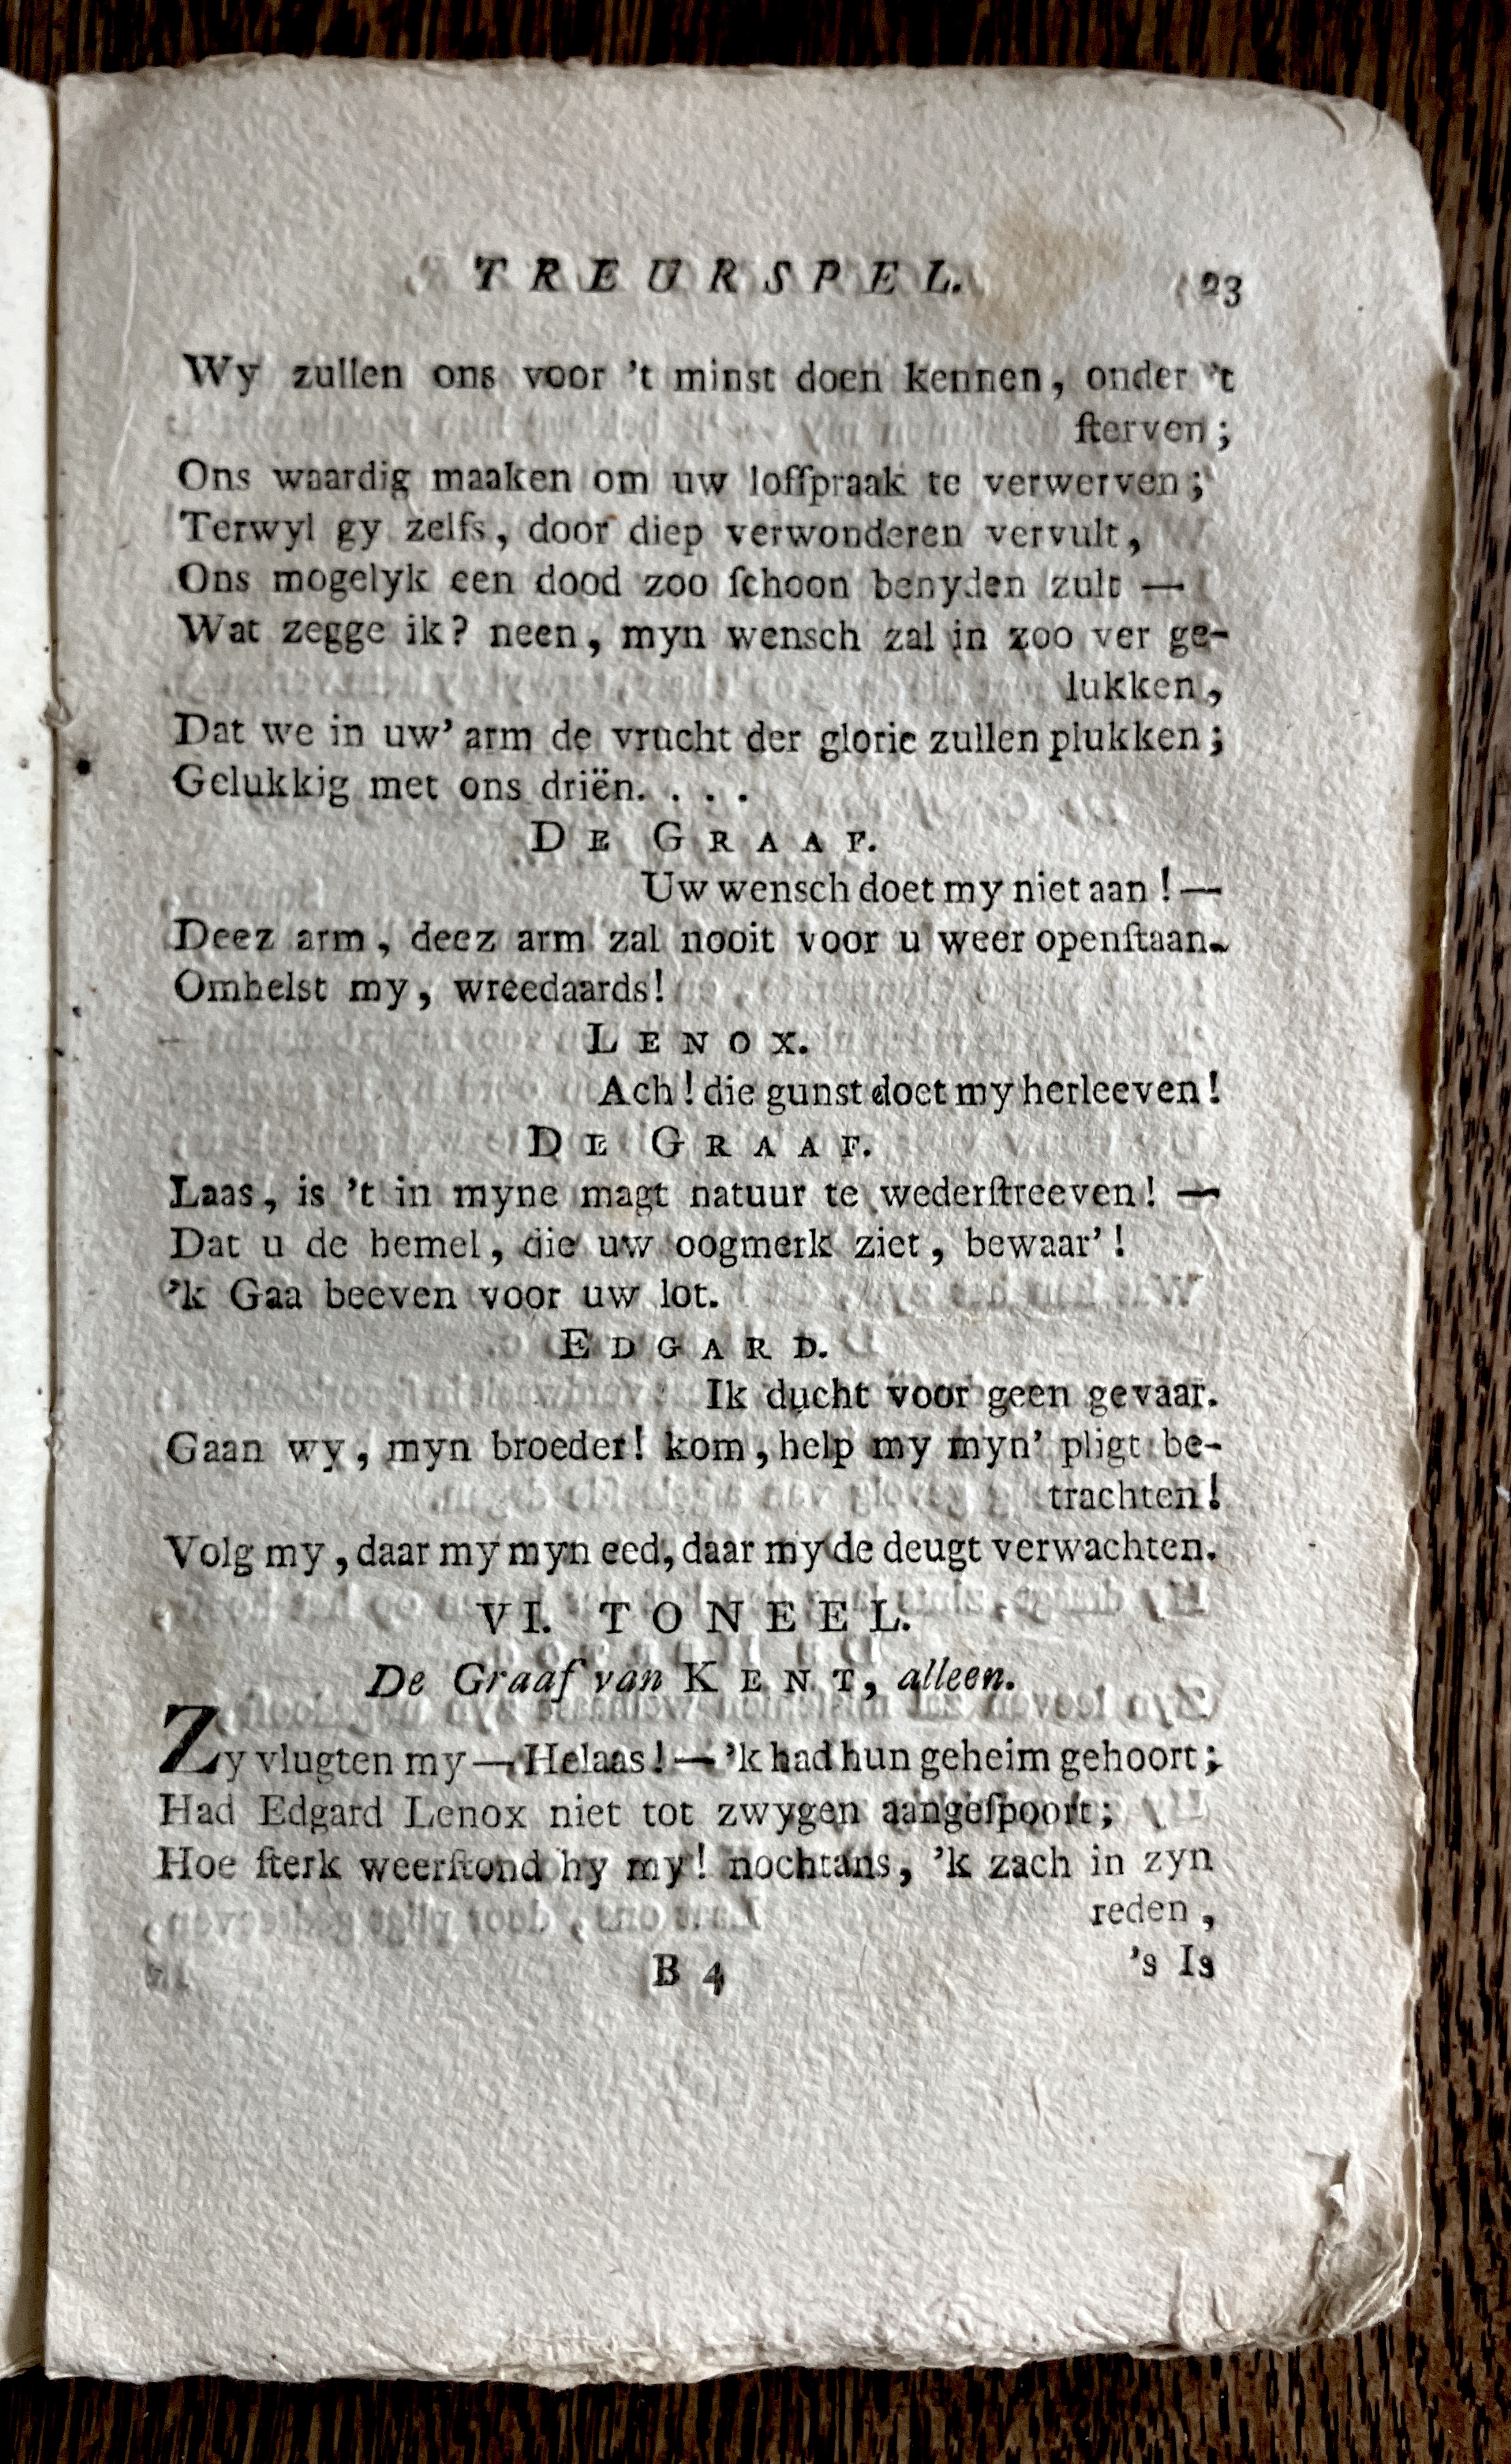 TREURSPEL. 23
Wy zullen ons voor 't minst doen kennen, onder 't
ſterven;
Ons waardig maaken om uw loffpraak te verwerven;
Terwyl gy zelfs, door diep verwonderen vervult,
Ons mogelyk een dood zoo ſchoon benyden zult —
Wat zegge ik? neen, myn wensch zal in zoo ver ge-
lukken,
Dat we in uw' arm de vrucht der glorie zullen plukken;
Gelukkig met ons driën. . . .
DE GRAAF.
Uw wensch doet my niet aan! —
Deez arm, deez arm zal nooit voor u weer openſtaan.
Omhelst my, wreedaards!
LENOX.
Ach! die gunst doet my herleeven!
DE GRAAF.
Laas, is 't in myne magt natuur te wederſtreeven! —
Dat u de hemel, die uw oogmerk ziet, bewaar'!
'k Gaa beeven voor uw lot.
EDGARD.
Ik ducht voor geen gevaar.
Gaan wy, myn broeder! kom, help my myn' pligt be-
trachten!
Volg my, daar my myn eed, daar my de deugt verwachten.
VI. TONEEL.
De Graaf van KENT, alleen.
Zy vlugten my — Helaas! — 'k had hun geheim gehoort;
Had Edgard Lenox niet tot zwygen aangeſpoort;
Hoe ſterk weerſtond hy my! nochtans, 'k zach in zyn
reden,
B 4 's Is